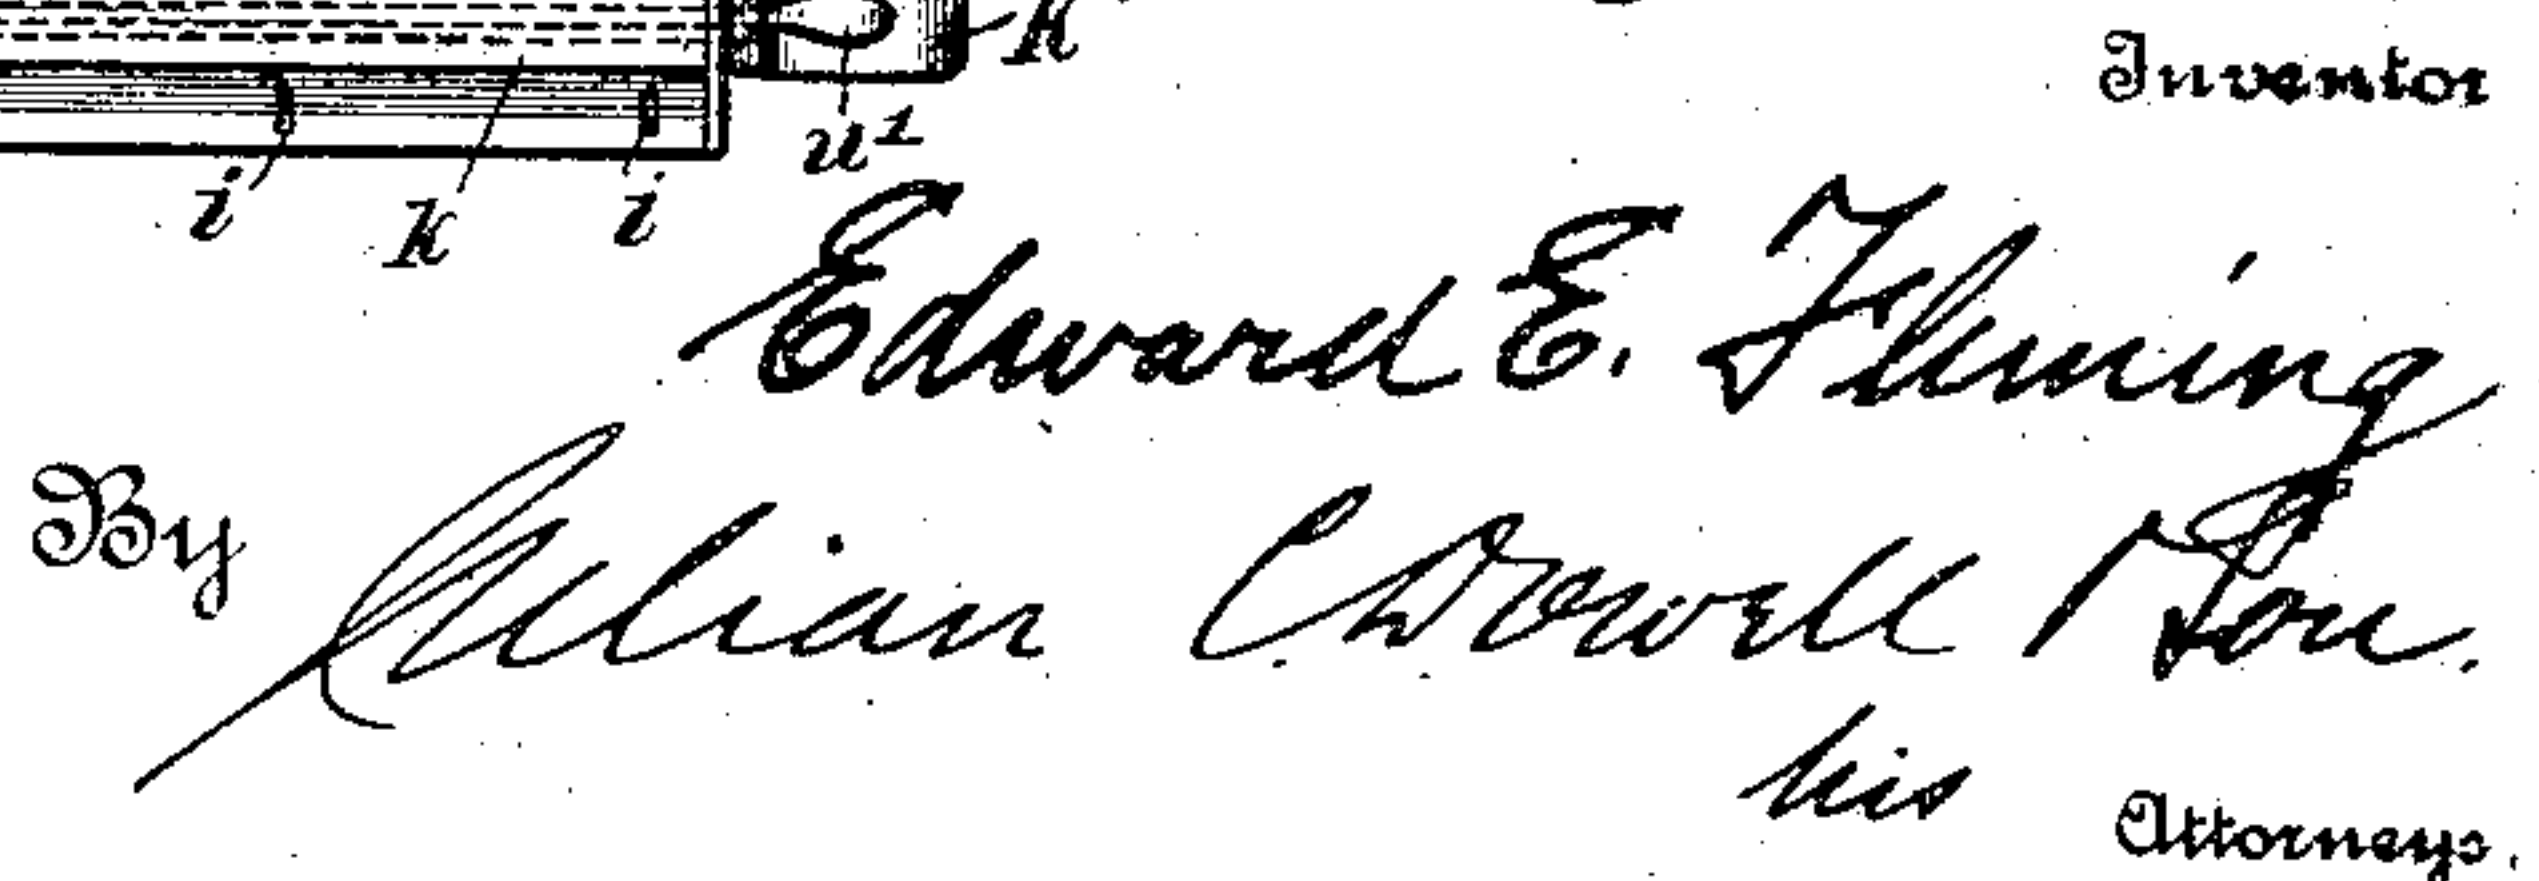 k
Inventor
u¹
i k i
Edward E. Fleming
By Julian C. Dowell & Son.
his
Attorneys.